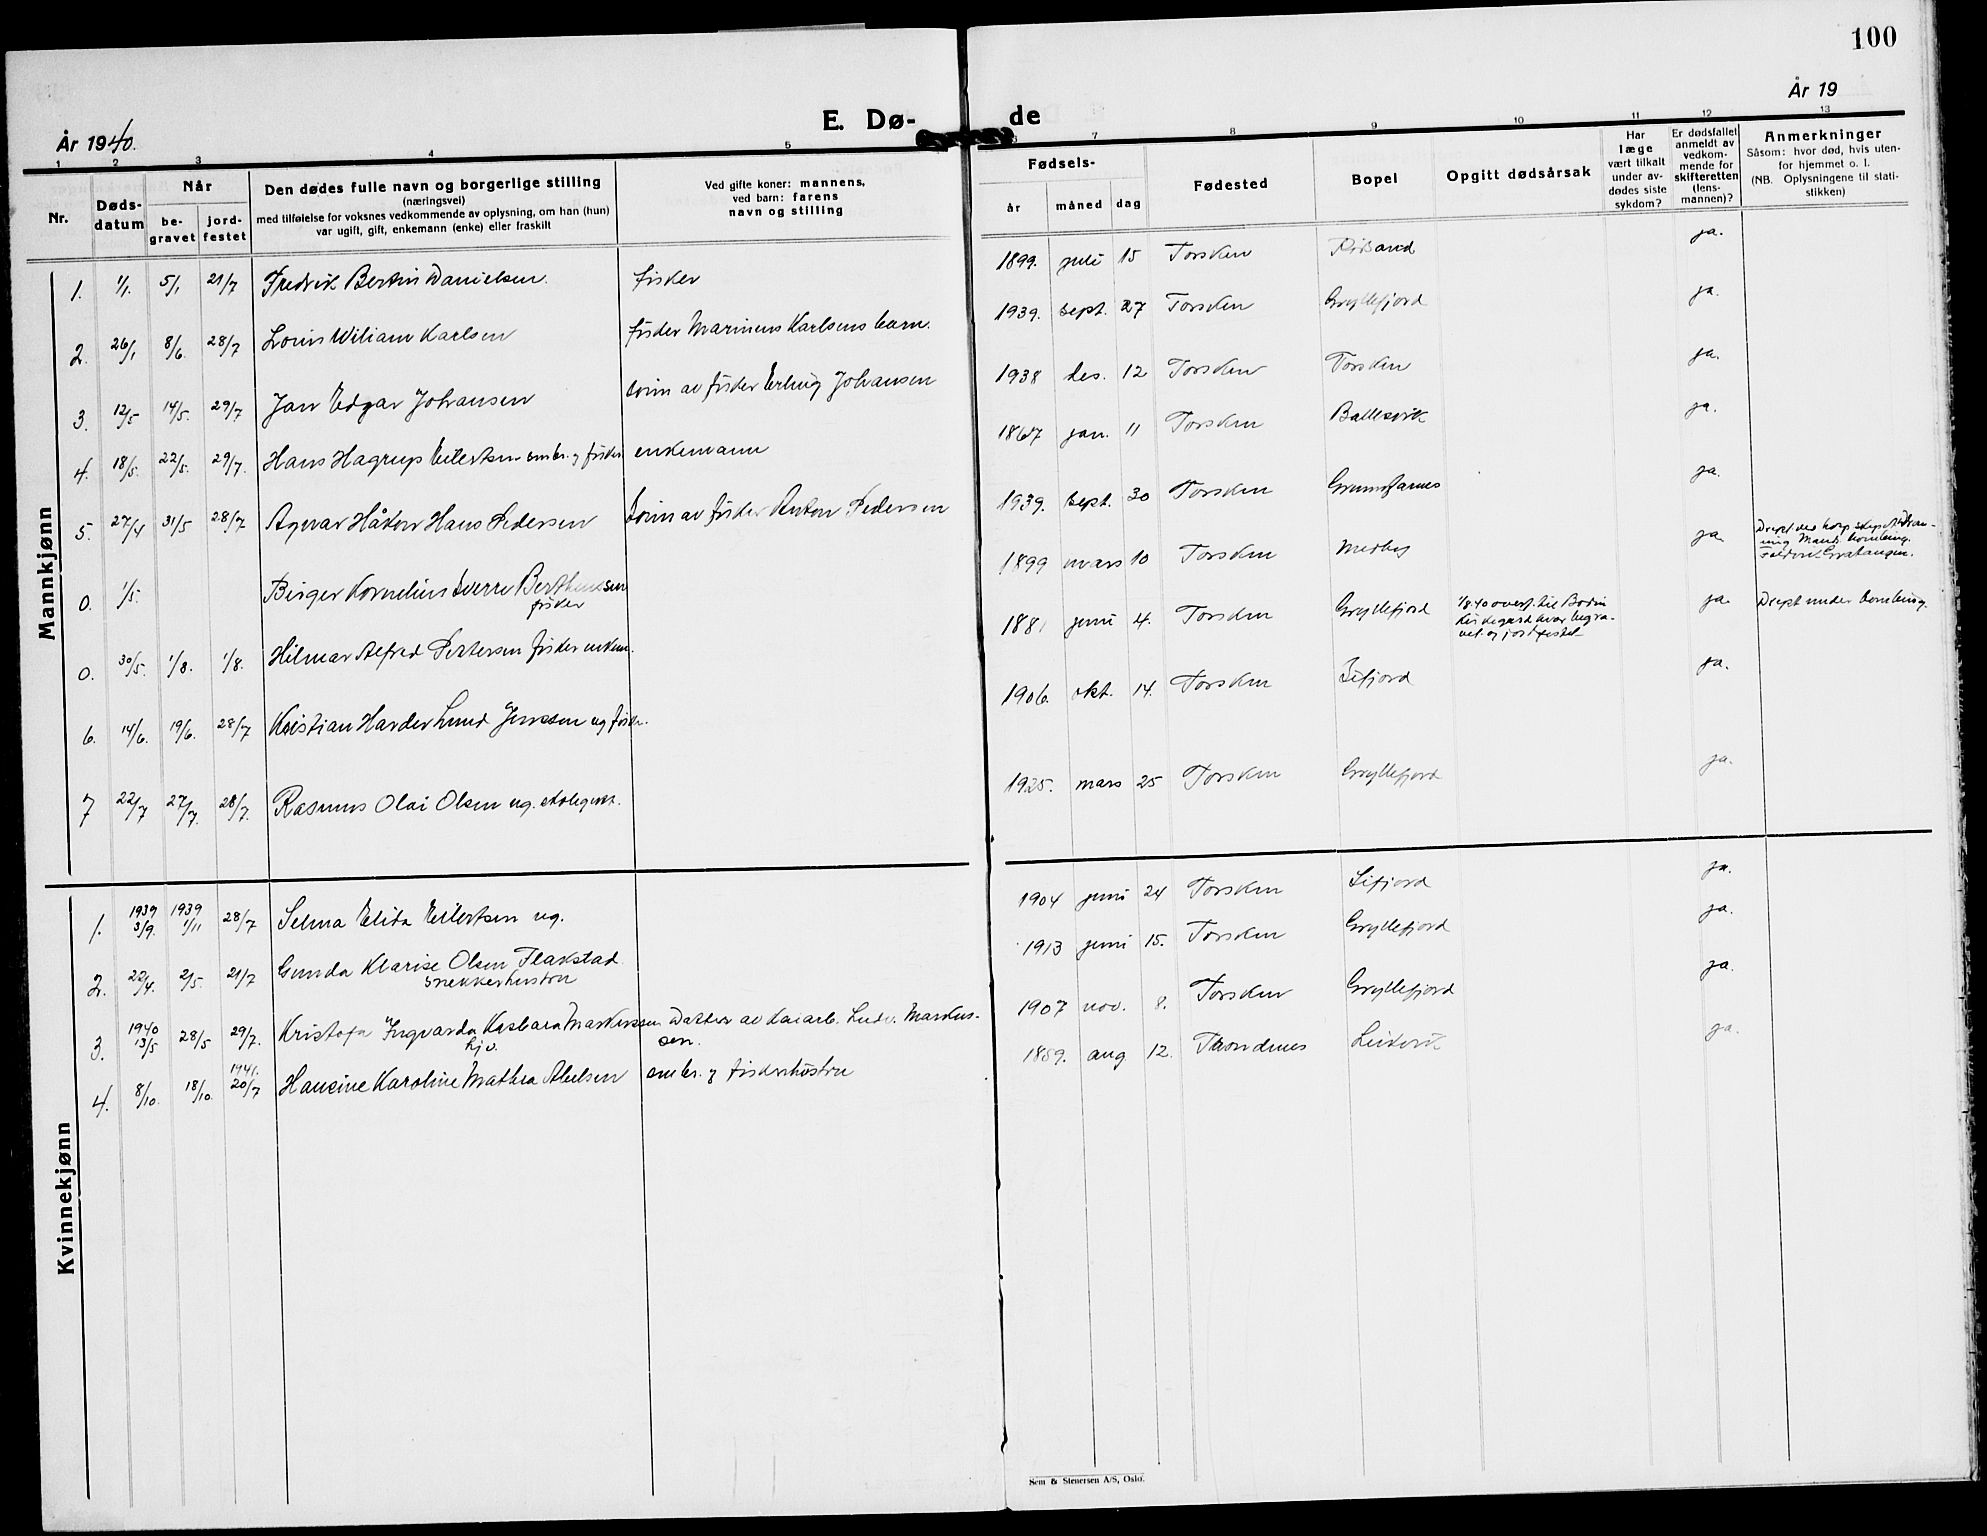 100
År 1940.
E. Dø-
de
År 19
1 2 3 4 5 6 7 8 9 10 11 12 13
Nr.
Døds-
datum
Når
be-
gravet
jord-
festet
Den dødes fulle navn og borgerlige stilling
(næringsvei)
med tilføielse for voksnes vedkommende av oplysning, om han (hun)
var ugift, gift, enkemann (enke) eller fraskilt
Ved gifte koner: mannens,
ved barn: farens
navn og stilling
Fødsels-
år
måned
dag
Fødested
Bopel
Opgitt dødsårsak
Har
læge
vært tilkalt
under av-
dødes siste
sykdom?
Er dødsfallet
anmeldt av
vedkom-
mende for
skifteretten
(lens-
mannen)?
Anmerkninger
Såsom: hvor død, hvis uten-
for hjemmet o. l.
(NB. Oplysningene til stati-
stikken)
Mannkjønn
1. 1/1. 5/1 21/7 Fredrik Bertin Danielsen. fisker 1899. juli 15 Torsken ja.
2. 26/1 8/6. 28/7 Louis Wiliam Karlsen fisker Marinius Karlsens barn. 1939. sept. 27 Torsken Gryllefjord ja.
3. 12/5 14/5. 29/7 Jan Edgar Johansen sønn av fisker Erling Johansen 1938 des. 12 Torsken Torsken ja.
4. 18/5. 22/5. 29/7. Hans Hagrup Eilertsen småbr. og fisker enkemann 1867 jan. 11 Torsken Ballesvik ja.
5. 27/4 31/5 28/7 Agnar Håkon Hans Pedersen sønn av fisker Anton Pedersen 1939. sept. 30 Torsken Grunnfarnes ja.
0. 1/5. Birger Kornelius Sverre Berthinussen
fisker
1899 mars 10 Torsken Medby ja.
Foldvik Gratangen.
0. 30/5. 1/8. 1/8. Hilmar Alfred Pettersen fisker enkem. 1881 juni 4. Torsken Gryllefjord 1/8.40 overf. til Bodin
kirkegård hvor begra-
vet og jordfestet
ja. Drept under bombing.
6. 14/6. 19/6. 28/7 Kristian Harder Lund Jenssen ug fisk. 1906. okt. 14. Torsken Sifjord ja.
7 22/7 27/7. 28/7. Rasmus Olai Olsen ug. skolegutt. 1925. mars 25 Torsken Gryllefjord ja.
Kvinnekjønn
1. 1939 3/9. 1939 1/11 28/7 Selma Elida Eilertsen ug. 1904 juni 24 Torsken Sifjord ja.
2. 22/4. 2/5. 21/7 Gunda Klarise Olsen Flakstad
snekkerhustru
1913 juni 15. Torsken Gryllefjord ja.
3. 1940 13/5 28/5 29/7. Kristofa Ingvarda Kasbara Markussen
hjv.
datter av kaiarb. Ludv. Markus-
sen.
1907 nov. 8. Torsken Gryllefjord ja.
4. 8/10. 18/10. 1941. 20/7 Hansine Karoline Mathea Abelsen småbr. og fiskerhustru 1859. aug 12. Trondenes Leikvik ja.
Sem & Stenersen A/S, Oslo.